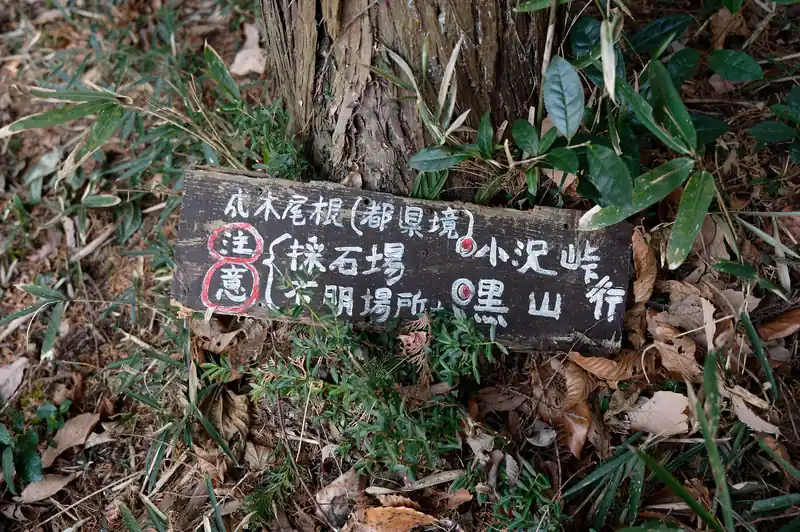 成木尾根(都県境)小沢峠
注意{採石場
不明場所 黒山行